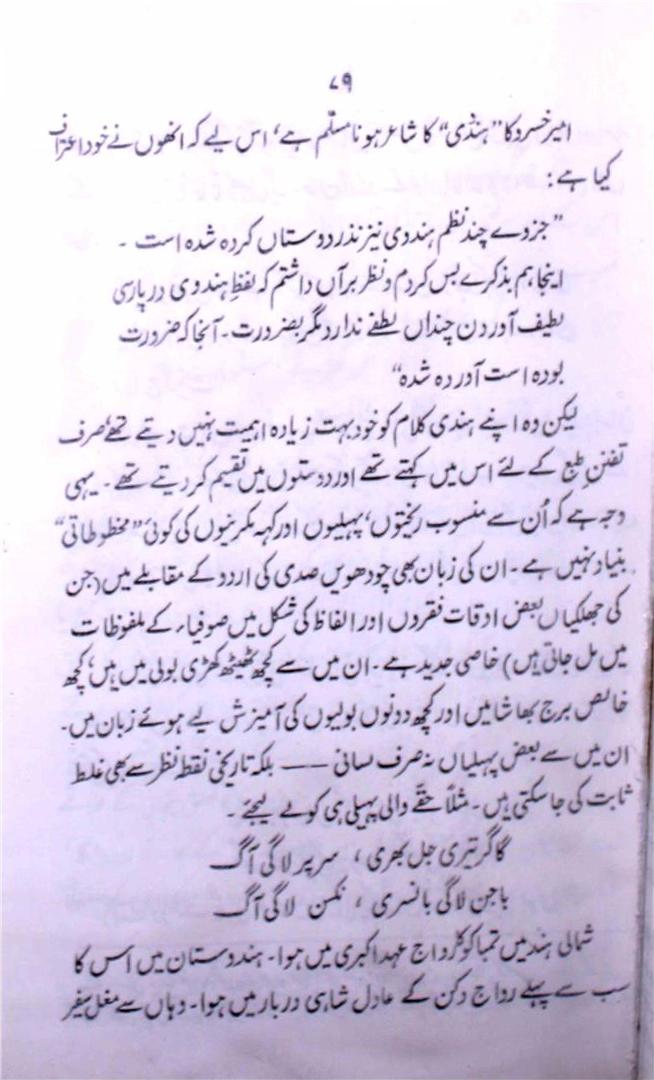 ۷۹
امیر خسرو کا "ہندی" کا شاعر ہونا مسلّم ہے، اس لیے کہ انھوں نے خود اعتراف
کیا ہے :
"جزوے چند نظم ہندوی نیز نذر دوستاں کردہ شدہ است ۔
اینجا ہم بذکرے بس کردم و نظر برآں داشتم کہ لفظِ ہندوی در پارسی
لطیف آوردن چنداں لطفے ندارد مگر بضرورت ۔ آنجا کہ ضرورت
بودہ است آوردہ شدہ"
لیکن وہ اپنے ہندی کلام کو خود بہت زیادہ اہمیت نہیں دیتے تھے، صرف
تفننِ طبع کے لئے اس میں کہتے تھے اور دوستوں میں تقسیم کر دیتے تھے ۔ یہی
وجہ ہے کہ اُن سے منسوب ریختوں، پہیلیوں اور کہہ مکرنیوں کی کوئی "مخطوطاتی"
بنیاد نہیں ہے ۔ ان کی زبان بھی چودھویں صدی کی اردو کے مقابلے میں (جن
کی جھلکیاں بعض اوقات فقروں اور الفاظ کی شکل میں صوفیاء کے ملفوظات
میں مل جاتی ہیں) خاصی جدید ہے ۔ ان میں سے کچھ ٹھیٹھ کھڑی بولی میں ہیں، کچھ
خالص برج بھاشا میں اور کچھ دونوں بولیوں کی آمیزش لیے ہوئے زبان میں۔
ان میں سے بعض پہیلیاں نہ صرف لسانی —— بلکہ تاریخی نقطۂ نظر سے بھی غلط
ثابت کی جا سکتی ہیں ۔ مثلاً حقّے والی پہیلی ہی کو لے لیجئے ۔
گاگر تیری جل بھری ، سر پر لاگی آگ
باجن لاگی بانسری ، نکسن لاگی آگ
شمالی ہند میں تمباکو کا رواج عہد اکبری میں ہوا ۔ ہندوستان میں اس کا
سب سے پہلے رواج دکن کے عادل شاہی دربار میں ہوا ۔ وہاں سے مغل سفیر